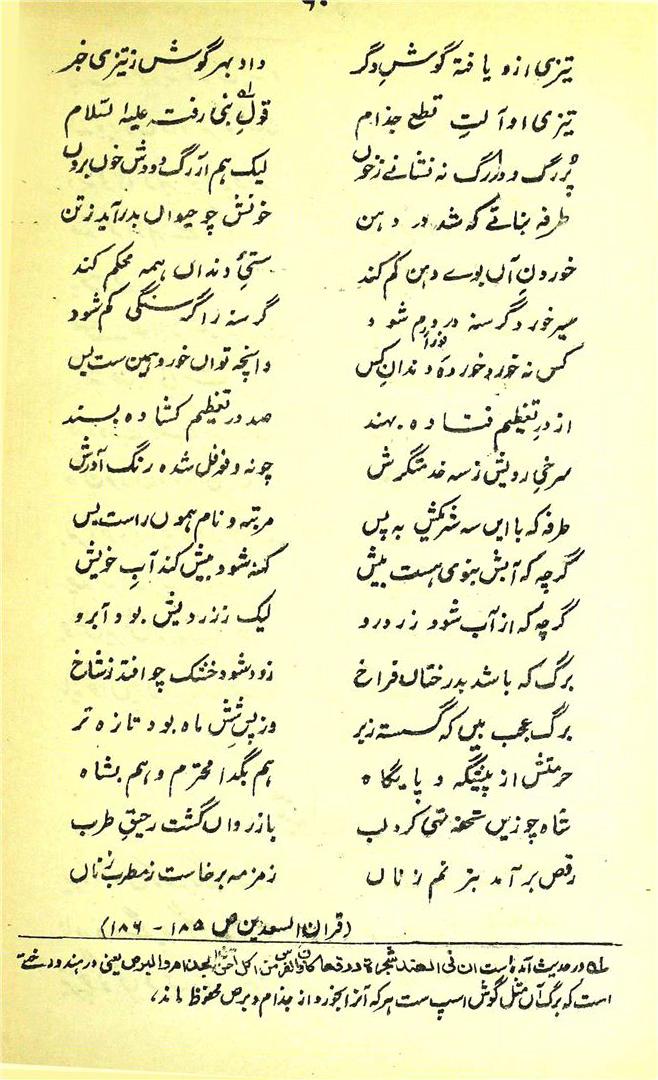 ۶۰
تیزی ازو یافتہ گوشِ دگر داد بہر گوش ز تیزی خبر
تیزی او آلتِ قطع جذام قولِ نبی رفت علیہ السلام
پُر رگ و در رگ نہ نشانے ز خوں لیک ہم از رگ دودش خوں بروں
طرفہ نباتے کہ شد در دہن خونش چو حیواں بدر آید ز تن
خوردنِ آں بوے دہن کم کند سستیٔ دنداں ہمہ محکم کند
سیر خورد گرسنہ در دم شود گرسنہ را گرسنگی کم شود
کس نہ خورد خوردہ دندانِ کس وانچہ تواں خورد ہمین ست بس
از درِ تعظیم فتادہ بہند صد درِ تعظیم کشادہ بسند
سرخیِ رویش ز سہ خدمتگرش چونہ و فوفل شدہ رنگ آورش
طرفہ کہ با ایں سہ شریکش بہ پس مرتبہ و نام ہموں راست بس
گرچہ کہ آبش بنوی ہست بیش کہنہ شود بیش کند آبِ خویش
گرچہ کہ از آب شود زرد رو لیک ز زردیش بود آبرو
برگ کہ باشد بدرختاں فراخ زود شود خشک چو افتد ز شاخ
برگ عجب بیں کہ گسستہ ز بر وز پسِ شش ماہ بود تازہ تر
حرمتش از پیشگہ و پایگاہ ہم بگدا محترم و ہم بشاہ
شاہ چو زیں تحفہ تہی کرد لب باز رواں گشت رحیقِ طرب
رقص برآمد بنرنم زناں زمزمہ برخاست ز مطرب زناں
(قران السعدین ص ۱۸۵ - ۱۸۶)
لہ در حدیث آمدہ است ان فی الہند شجرۃ ورقہا کاذن الفرس من اکل آمن الجذام والبرص یعنی در ہند درختے
است کہ برگ آں مثل گوش اسپ ست ہر کہ آنرا بخورد از جذام و برص محفوظ ماند،